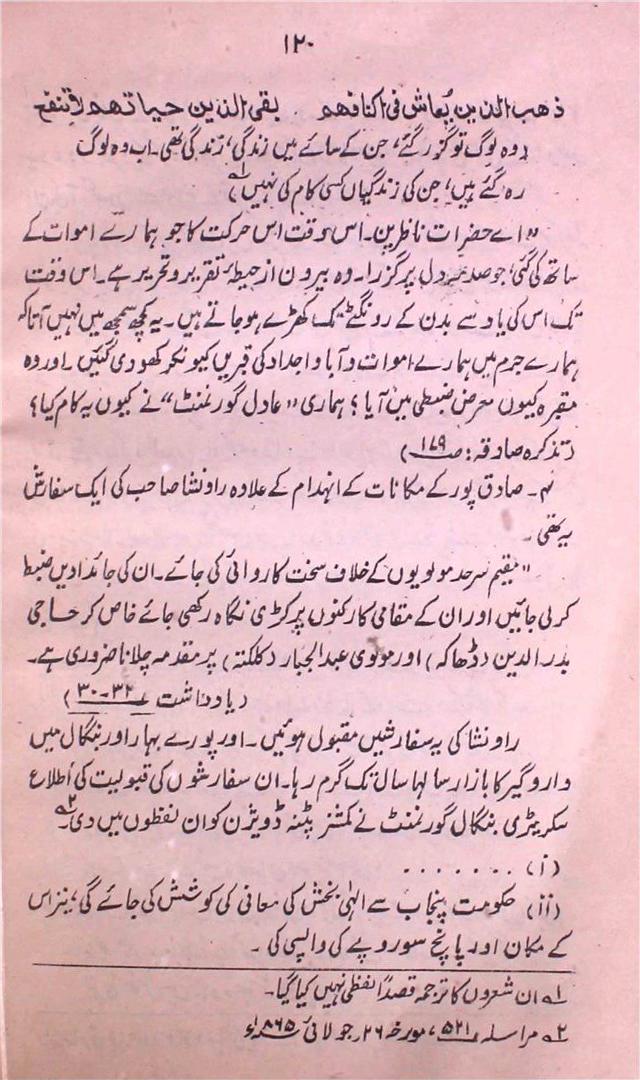 ۱۲۰
ذهب الذين يُعاش فى اكنافهم بقى الذين حياتهم لا تنفع
(وہ لوگ تو گزر گئے، جن کے سائے میں زندگی، زندگی تھی۔ اب وہ لوگ
رہ گئے ہیں، جن کی زندگیاں کسی کام کی نہیں)۱؎
"اے حضرات ناظرین۔ اس وقت اس حرکت کا جو ہمارے اموات کے
ساتھ کی گئی، جو صدمہ دل پر گزرا۔ وہ بیرون از حیطۂ تقریر و تحریر ہے۔ اس وقت
تک اس کی یاد سے بدن کے رونگٹے تک کھڑے ہو جاتے ہیں۔ یہ کچھ سمجھ میں نہیں آتا کہ
ہمارے جرم میں ہمارے اموات و آبا و اجداد کی قبریں کیونکر کھودی گئیں۔ اور وہ
مقبرہ کیوں معرض ضبطی میں آیا؟ ہماری "عادل گورنمنٹ" نے کیوں یہ کام کیا؟
(تذکرہ صادقہ: ص ۱۷۹)
۴۔ صادق پور کے مکانات کے انہدام کے علاوہ راونشا صاحب کی ایک سفارش
یہ تھی۔
"مقیم سرحد مولویوں کے خلاف سخت کاروائی کی جائے۔ ان کی جائدادیں ضبط
کر لی جائیں اور ان کے مقامی کارکنوں پر کڑی نگاہ رکھی جائے خاص کر حاجی
بدر الدین (ڈھاکہ) اور مولوی عبد الجبار (کلکتہ) پر مقدمہ چلانا ضروری ہے۔
(یادداشت ۳۲۔۳۰)
راونشا کی یہ سفارشیں مقبول ہوئیں۔ اور پورے بہار اور بنگال میں
داروگیر کا بازار سالہا سال تک گرم رہا۔ ان سفارشوں کی قبولیت کی اطلاع
سکریٹری بنگال گورنمنٹ نے کمشنر پٹنہ ڈویژن کو ان لفظوں میں دی۔۲؎
(i) . . . . . . .
(ii) حکومت پنجاب سے الٰہی بخش کی معافی کی کوشش کی جائے گی، نیز اس
کے مکان اور پانچ سو روپے کی واپسی کی۔
۱؎ ان شعروں کا ترجمہ قصداً لفظی نہیں کیا گیا۔
۲؎ مراسلہ ۵۲۱، مورخہ ۲۶ جولائی ۱۸۶۵ء